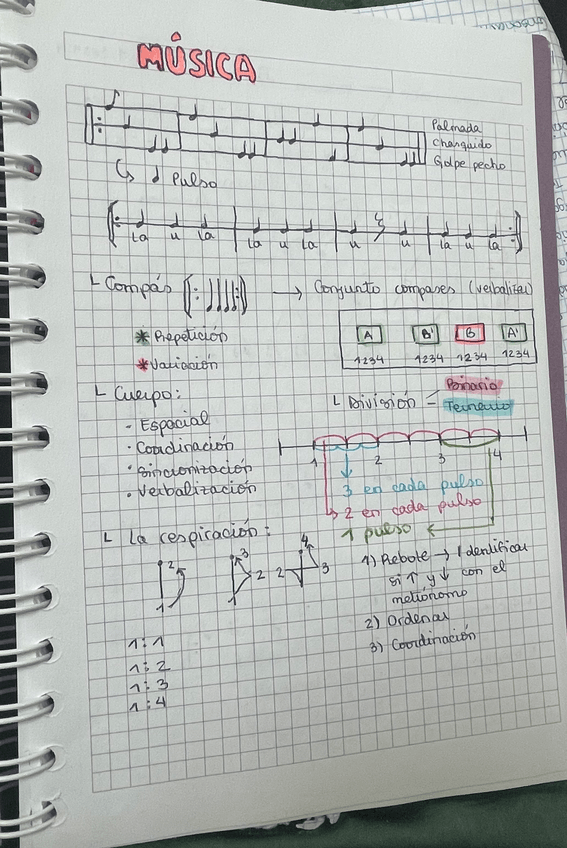 MÚSICA
Palmada
Chasquido
Golpe pecho
↳ ♩ Pulso
La u La La u La u u La u La
Compás → Conjunto compases (verbalizar)
A B' B A'
1234 1234 1234 1234
* Repetición
* Variación
Cuerpo:
- Espacial
· Coordinación
· Sincronización
· Verbalización
División = Binario
Ternario
1 2 3 4
3 en cada pulso
2 en cada pulso
1 pulso
La respiración:
1 2
1 2 3
1 2 3 4
1:1
1:2
1:3
1:4
1) Rebote → Identificar
si ↑ y ↓ con el
metrónomo
2) Ordenar
3) Coordinación